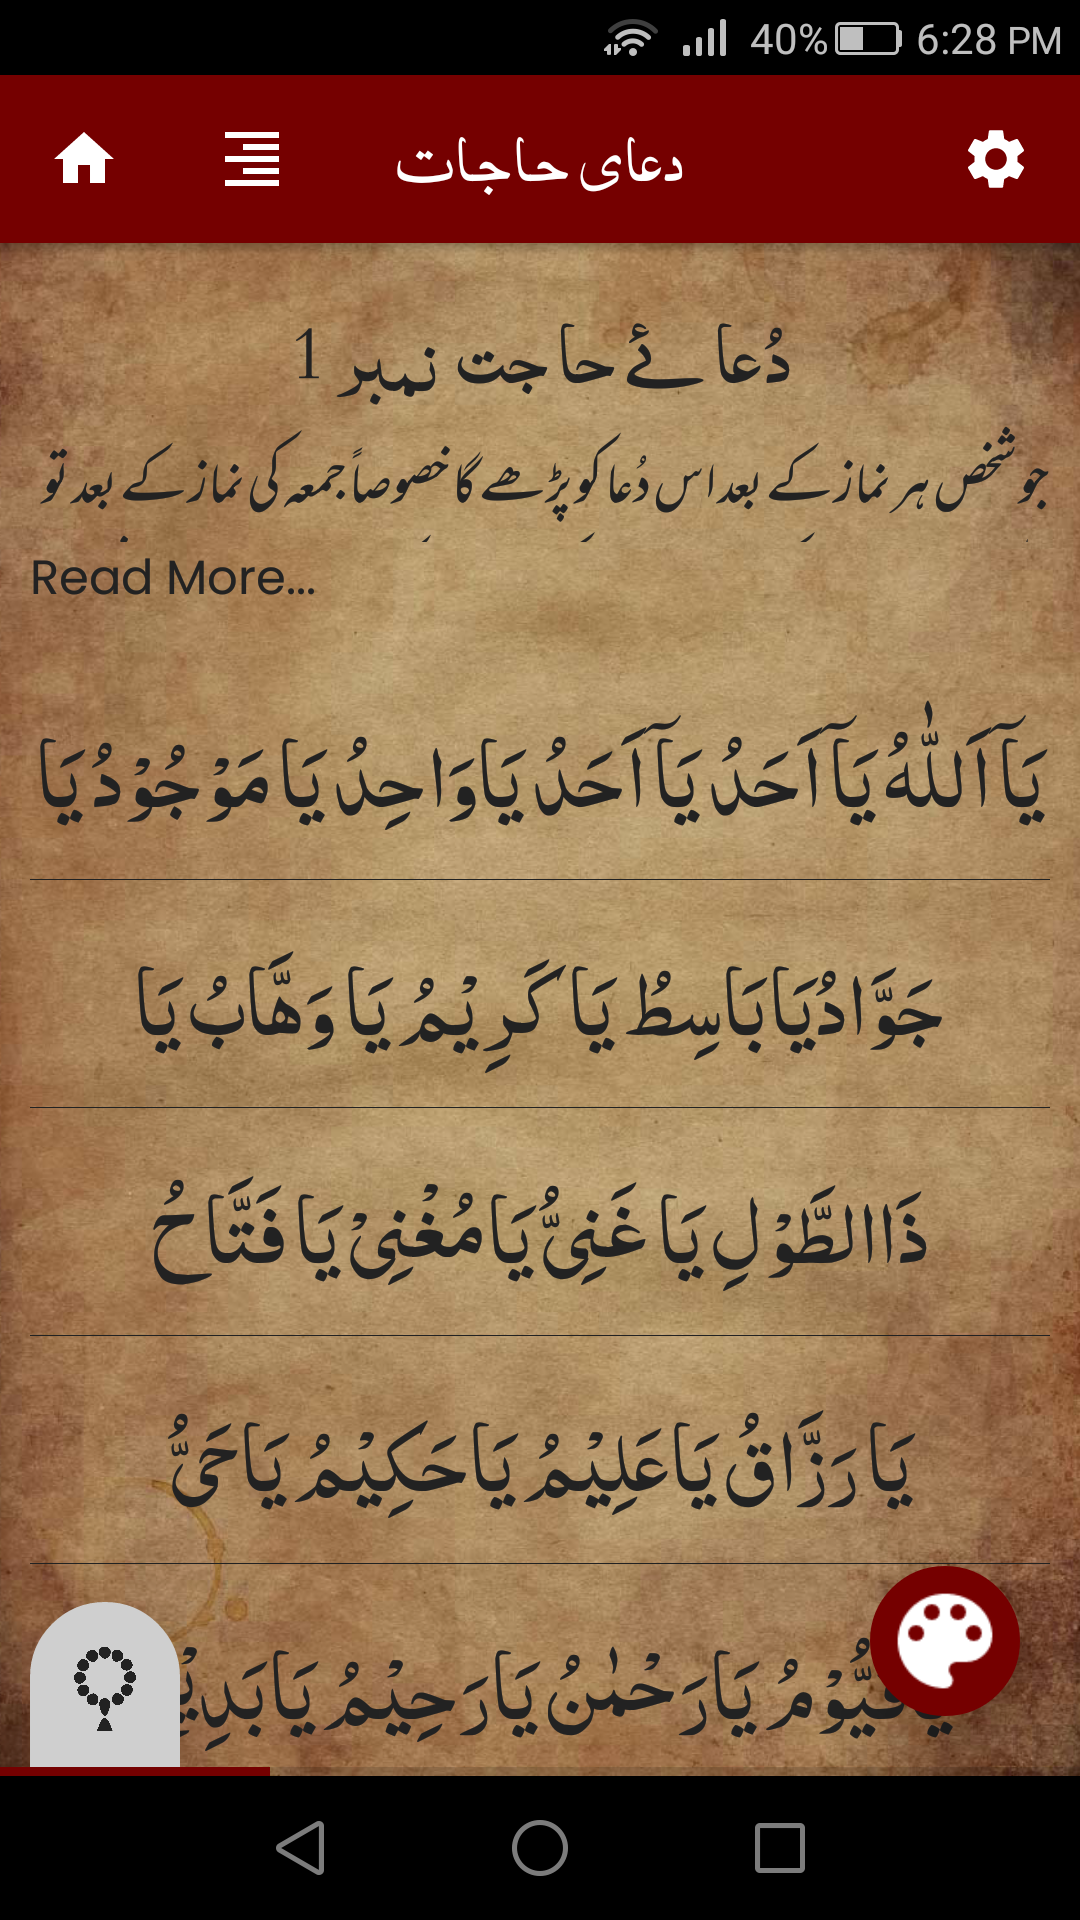 40% 6:28 PM
دعای حاجات
دُعائے حاجت نمبر 1
جو شخص ہر نماز کے بعد اس دُعا کو پڑھے گا خصوصاً جمعہ کی نماز کے بعد تو
Read More...
یَآ اَللّٰهُ یَآ اَحَدُ یَآ اَحَدُ یَاوَاحِدُ یَا مَوْجُوْدُ یَا
جَوَّادُیَابَاسِطُ یَا کَرِیْمُ یَا وَهَّابُ یَا
ذَاالطَّوْلِ یَا غَنِیُّ یَا مُغْنِیْ یَا فَتَّاحُ
یَا رَزَّاقُ یَاعَلِیْمُ یَاحَکِیْمُ یَاحَیُّ
یَاقَیُّوْمُ یَارَحْمٰنُ یَارَحِیْمُ